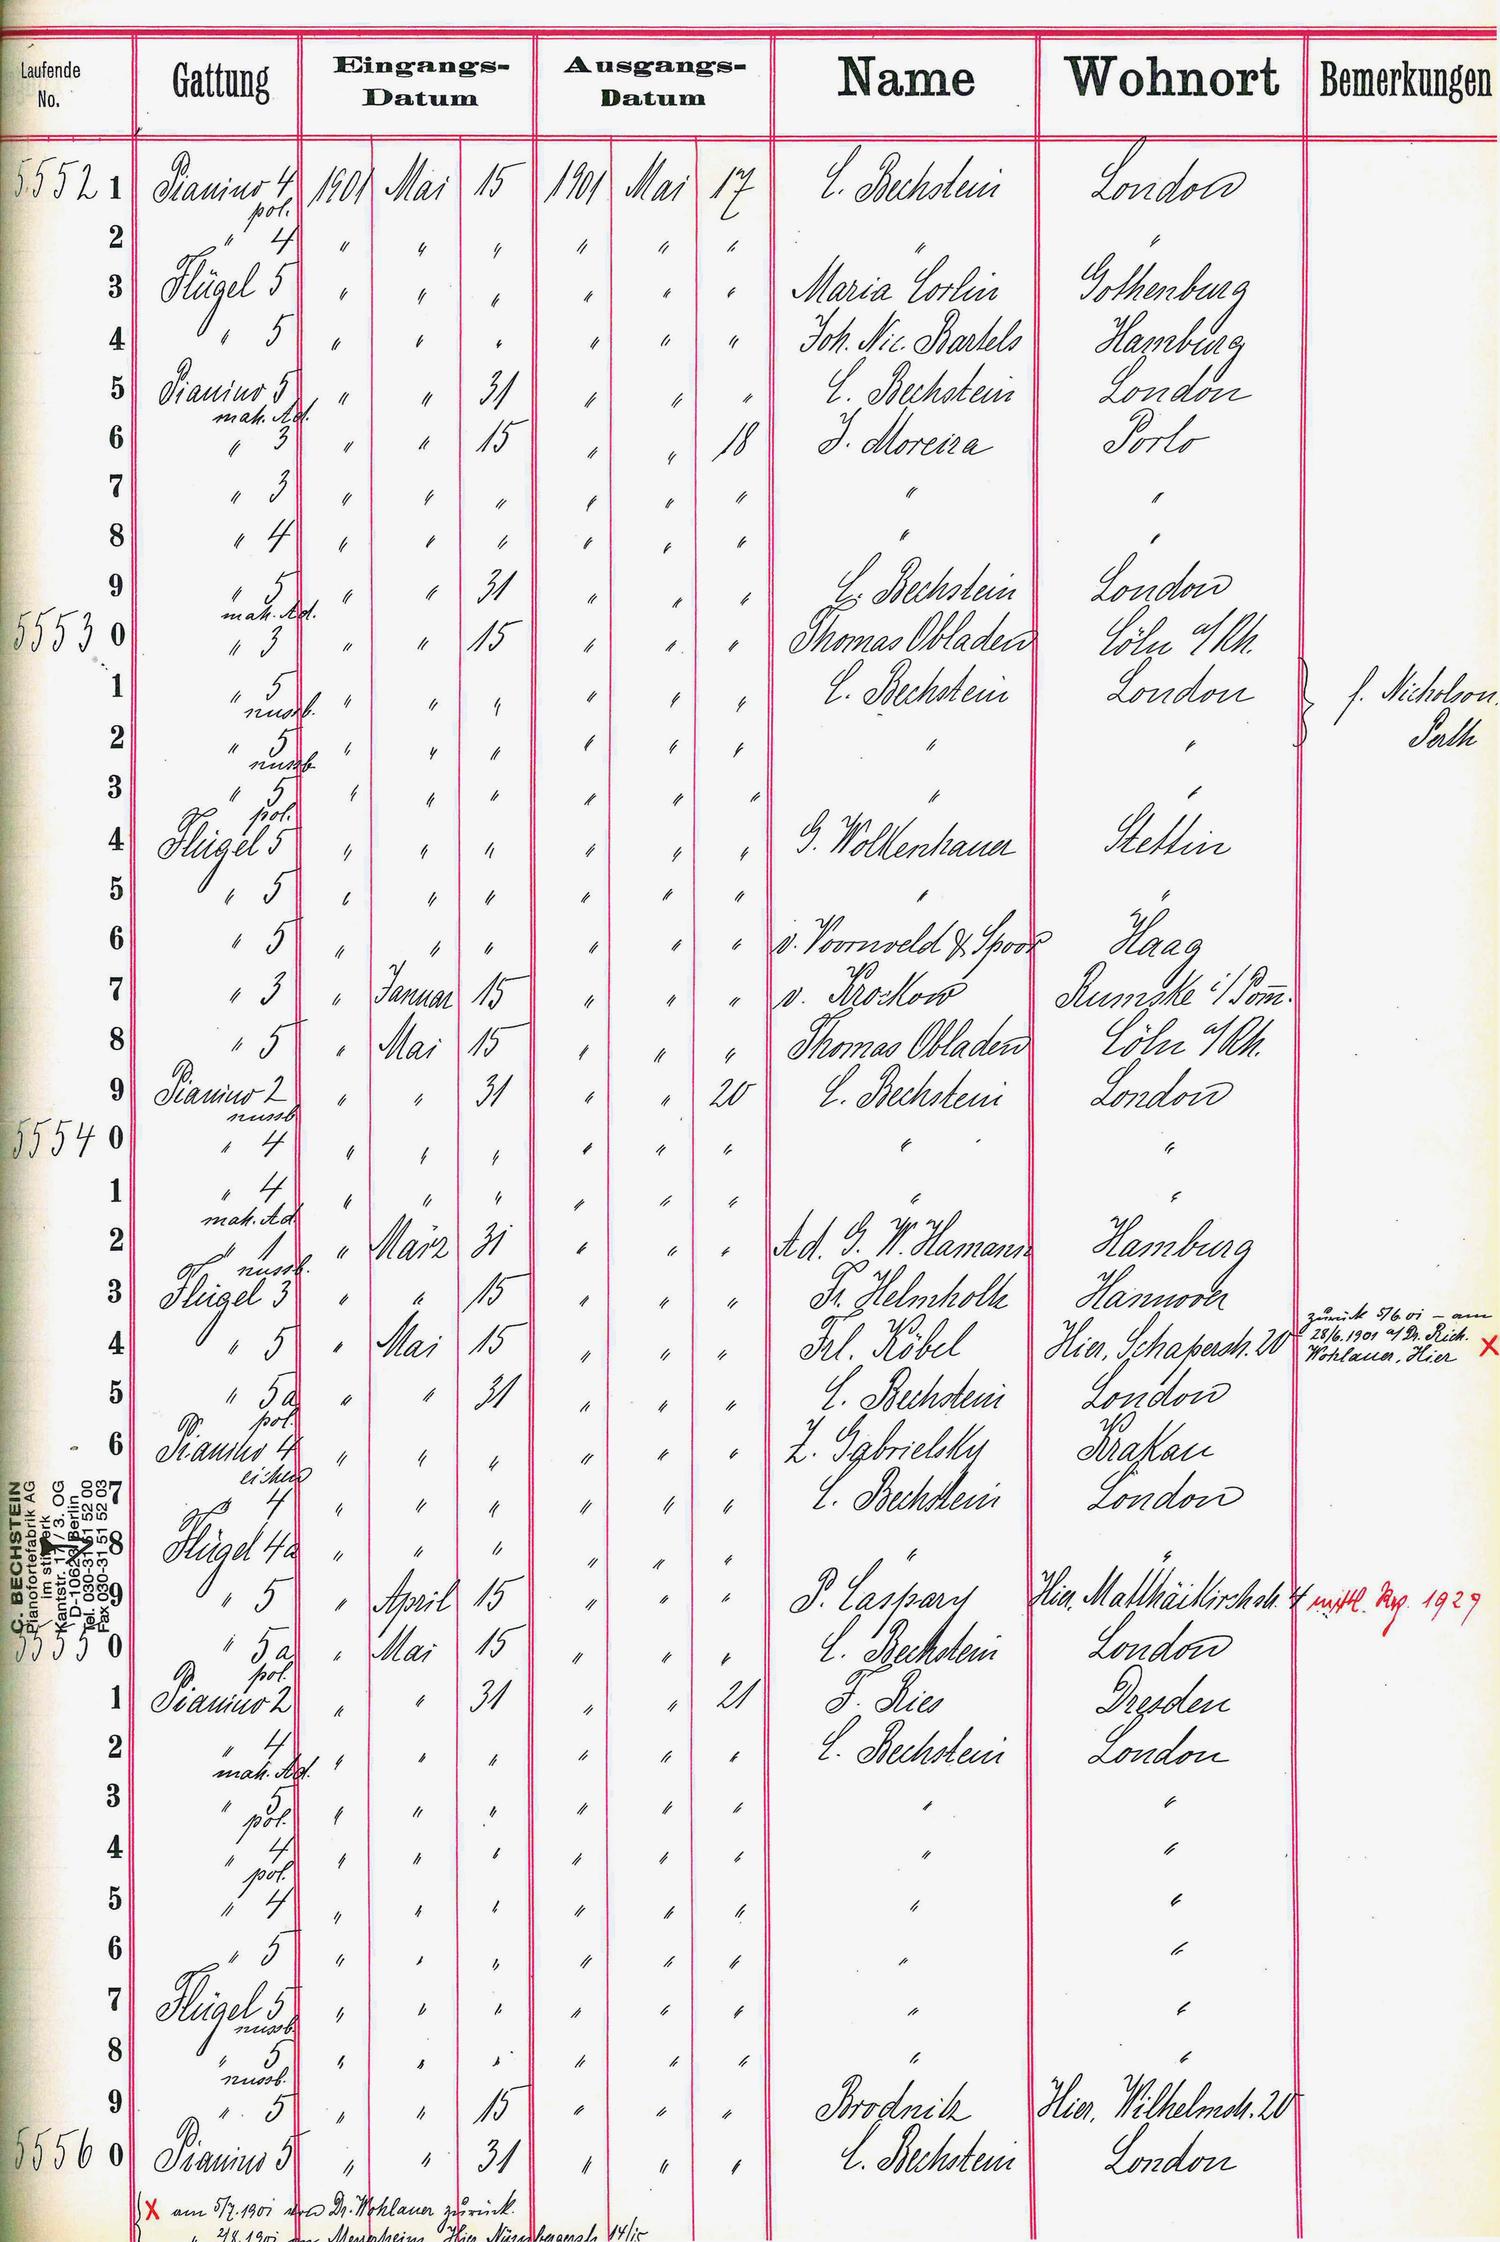 Laufende No. Gattung Eingangs-Datum Ausgangs-Datum Name Wohnort Bemerkungen
55521 Pianino 4 pol. 1901 Mai 15 1901 Mai 17 C. Bechstein London
2 " 4 " " " " " " " "
3 Flügel 5 " " " " " " Maria Corlin Gothenburg
4 " 5 " " " " " " Joh. Nic. Bartels Hamburg
5 Pianino 5 mah. Ad. " " 31 " " " C. Bechstein London
6 " 3 " " 15 " " 18 J. Moreira Porto
7 " 3 " " " " " " " "
8 " 4 " " " " " " " "
9 " 5 mah. Ad. " " 31 " " " C. Bechstein London
55530 " 3 " " 15 " " " Thomas Obladen Cöln a/Rh.
1 " 5 nussb. " " " " " " C. Bechstein London f. Nicholson.
2 " 5 nussb. " " " " " " " " Perth
3 " 5 pol. " " " " " " " "
4 Flügel 5 " " " " " " G. Wolkenhauer Stettin
5 " 5 " " " " " " " "
6 " 5 " " " " " " v. Voornveld & Spoor Haag
7 " 3 " Januar 15 " " " v. Krockow Rumske i/Pom.
8 " 5 " Mai 15 " " " Thomas Obladen Cöln a/Rh.
9 Pianino 2 nussb " " 31 " " 20 C. Bechstein London
55540 " 4 " " " " " " " "
1 " 4 mah. Ad " " " " " " " "
2 " 1 nussb. " März 31 " " " Ad. G. W. Hamann Hamburg
3 Flügel 3 " " 15 " " " Fr. Helmholz Hannover
4 " 5 " Mai 15 " " " Frl. Köbel Hier, Schaperstr. 20 zurück 5/6 01 – am
28/6. 1901 a/ Dr. Rich.
Wohlauer, Hier X
5 " 5a pol. " " 31 " " " C. Bechstein London
6 Pianino 4 eichen " " " " " " Z. Gabrielsky Krakau
7 " 4 " " " " " " C. Bechstein London
8 Flügel 4a " " " " " " " "
9 " 5 " April 15 " " " P. Caspary Hier, Matthäikirchstr. 4 1929
C. BECHSTEIN
Pianofortefabrik AG
im stilwerk
Kantstr. 17 / 3. OG
D-10623 Berlin
Tel. 030-31 51 52 00
Fax 030-31 51 52 03
55550 " 5a pol. " Mai 15 " " " C. Bechstein London
1 Pianino 2 " " 31 " " 21 F. Ries Dresden
2 " 4 mah. Ad. " " " " " " C. Bechstein London
3 " 5 pol. " " " " " " " "
4 " 4 pol. " " " " " " " "
5 " 4 " " " " " " " "
6 " 5 " " " " " " " "
7 Flügel 5 nussb " " " " " " " "
8 " 5 nussb. " " " " " " " "
9 " 5 " " 15 " " " Brodnitz Hier, Wilhelmstr. 20
55560 Pianino 5 " " 31 " " " C. Bechstein London
X am 5/7. 1901 von Dr. Wohlauer zurück.
" 2/8. 1901 Hier Nürnbergerstr. 14/15